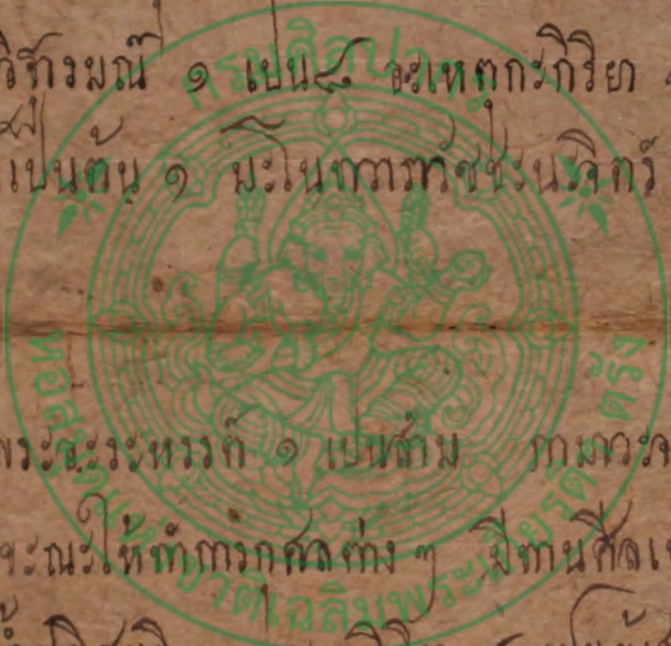 วิจารมณ์ ๑ เปน๔ อะเหตุกะกิริยา
เปนต้น ๑ มะโนทวาราวัชชะนะจิตร์
พระอะระหรรต์ ๑ เปนสาม กามาวะจ
ขะณะให้ทำการกุศลต่าง ๆ มีทานศีลเ
กรมศิลปากร
หอสมุดแห่งชาติเฉลิมพระเกียรติ ตรัง